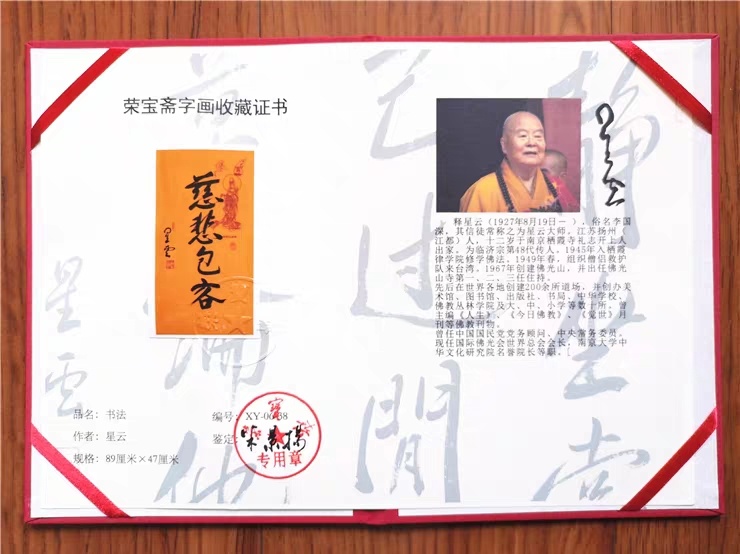 荣宝斋字画收藏证书
慈悲包容
星雲
品名：书法
编号：XY-0
作者：星云
鉴定：
规格：89厘米×47厘米
专用章
释星云（1927年8月19日－ ），俗名李国
深，其信徒常称之为星云大师，江苏扬州（
江都）人，十二岁于南京栖霞寺礼志开上人
出家，为临济宗第48代传人。1945年入栖霞
律学院修学佛法。1949年春，组织僧侣救护
队来台湾。1967年创建佛光山，并出任佛光
山寺第一、二、三任住持。
先后在世界各地创建200余所道场，并创办美
术馆、图书馆、出版社、书局、中华学校、
佛教丛林学院及大、中、小学等数十所。曾
主编《人生》、《今日佛教》、《觉世》月
刊等佛教刊物。
曾任中国国民党党务顾问、中央常务委员。
现任国际佛光会世界总会会长，南京大学中
华文化研究院名誉院长等职。
星雲